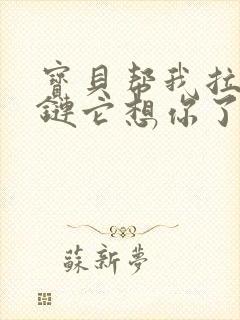 寶貝幫我拉
鏈它想你了
蘇新夢